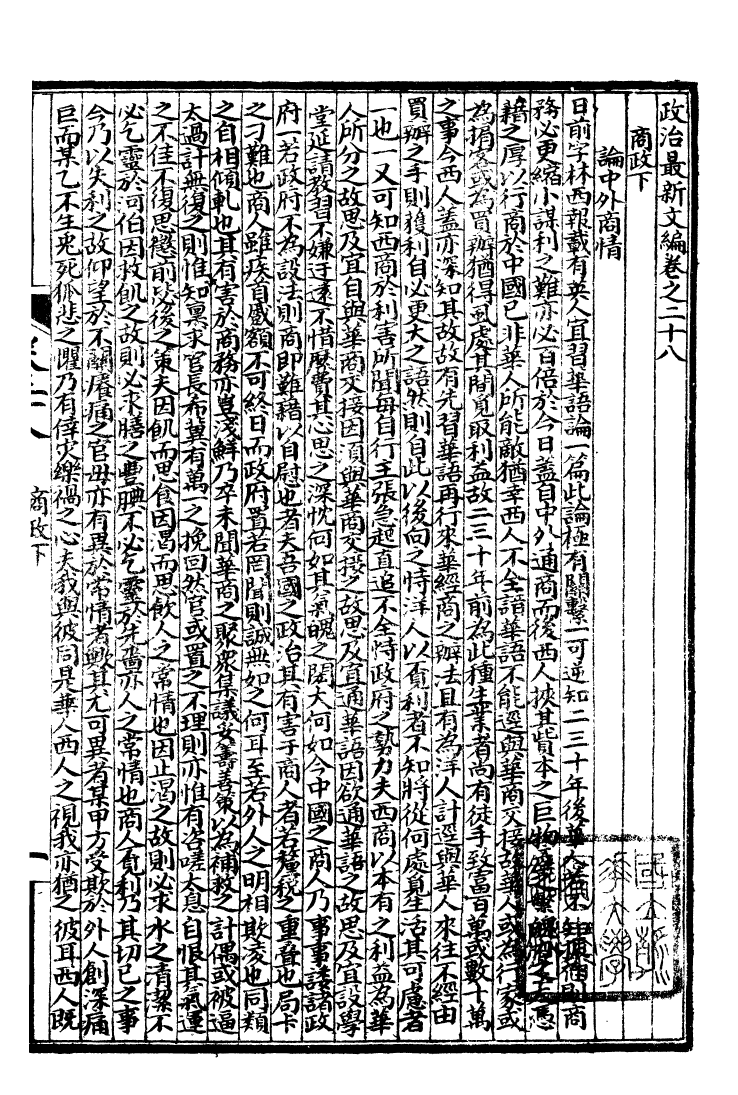 政治最新文編卷之二十八
商政下
論中外商情
日前字林西報載有英人宜習華語論一篇此論極有關繫一可逆知二三十年後華人若不知原則商
務必更縮小謀利之難亦必百倍於今日蓋自中外通商而後西人挾其貲本之巨物之繁憑
藉之厚以行商於中國已非華人所能敵猶幸西人不全諳華語不能逕與華商交接故華人或為行家或
為掮客或為買辦猶得風處其間覓取利益故二三十年前為此種生業者尚有徒手致富百萬或數十萬
之事今西人蓋亦深知其故故有先習華語再行來華經商之辦法且有為洋人計逕與華人來往不經由
買辦之手則獲利自必更大之語然則自此以後向之恃洋人以覓利者不知將從何處覓生活其可慮者
一也一又可知西商於利害所關每自行主張急起直追不全恃政府之勢力夫西商以本有之利益為華
人所分之故思及宜自與華商交接因須與華商交接之故思及宜通華語因欲通華語之故思及宜設學
堂延請教習不嫌迂遠不惜縻費其心思之深忱何如其氣魄之闊大何如今中國之商人乃事事諉諸政
府一若政府不為設法則商即難藉以自慰也者夫吾國之政治其有害于商人者若釐稅之重疊也局卡
之刁難也商人雖疾首蹙額不可終日而政府置若罔聞則誠無如之何耳至若外人之明相欺凌也同類
之自相傾軋也其有害於商務亦豈淺鮮乃卒未聞華商之聚衆集議妥籌善策以為補救之計偶或被逼
太過計無復之則惟知稟求官長布冀有萬一之挽回然官或置之不理則亦惟有咨嗟太息自恨其氣運
之不佳不復思懲前毖後之策夫因飢而思食因渴而思飲人之常情也因止渴之故則必求水之清潔不
必乞靈於河伯因救飢之故則必求膳之豐腆不必乞靈於先嗇亦人之常情也商人覓利乃其切己之事
今乃以失利之故仰望於不關癢痛之官毋亦有異於常情者歟其尤可異者某甲方受欺於外人創深痛
巨而某乙不生兔死狐悲之懼乃有倖災樂禍之心夫我與彼同是華人西人之視我亦猶之彼耳西人既
卷二十八
商政下
一